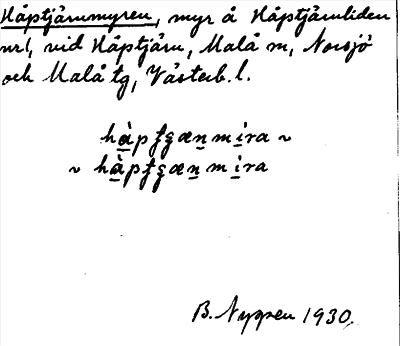 Håptjärnmyren, myr å Håptjärnliden
nr1, vid Håptjärn, Malå m, Norsjö
och Malå tg, Västerb. l.
håpʈʂæn mira ~
~ håpʈʂæn mira
B. Nyppen 1930.